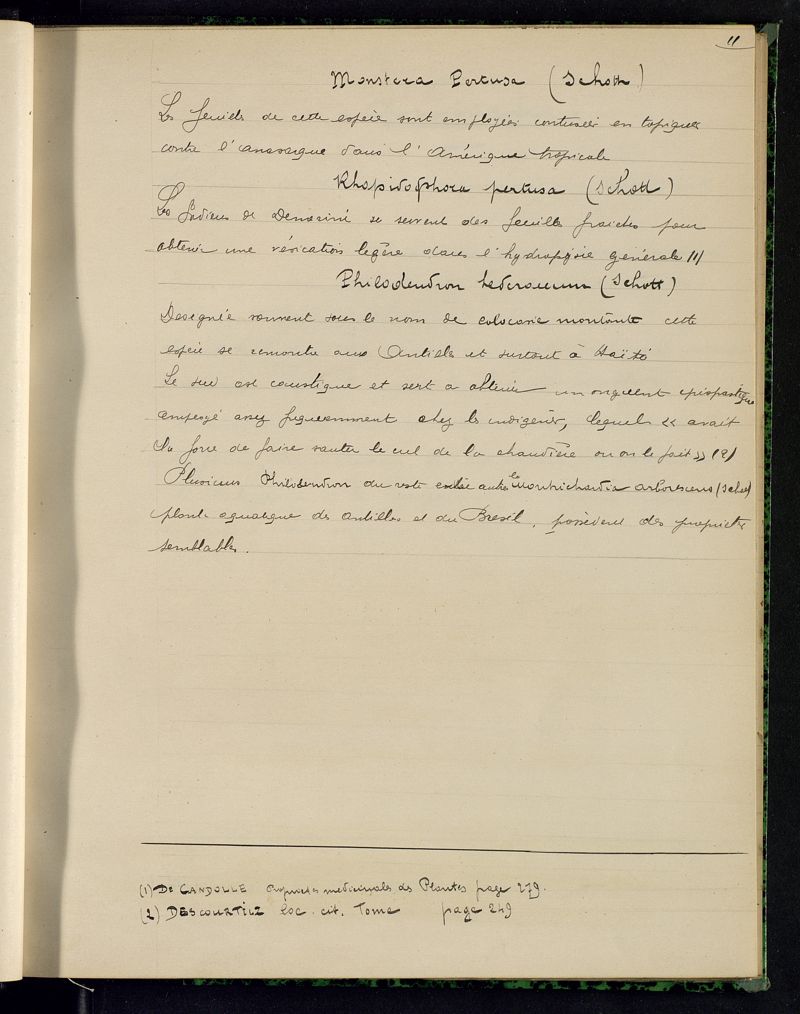 11
Monstera Pertusa (Schott)
Les feuilles de cette espèce sont employées contusées en topiques
contre l'anasarque dans l'Amérique tropicale
Rhapidophora pertusa (Schott)
Les Indiens de Demerini se servent des feuilles fraiches pour
obtenir une vésication legère dans l'hydropisie générale (1)
Philodendron hederaceum (Schott)
Designée souvent sous le nom de colocasie montante cette
espèce se rencontre aux Antilles et surtout à Haïti
Le suc est caustique et sert a obtenir un onguent épispastique
employé assez frequemment chez les indigenes, lequel « avait
la force de faire sauter le cul de la chaudière ou on le fait » (2)
Plusieurs Philodendron du reste entre autre le Montrichardia arborescens (Schott)
plante aquatique des antilles et du Bresil, possèdent des proprietes
semblables.
(1) De CANDOLLE Proprietes medicinales des Plantes page 279.
(2) DESCOURTILZ loc. cit. Tome page 249